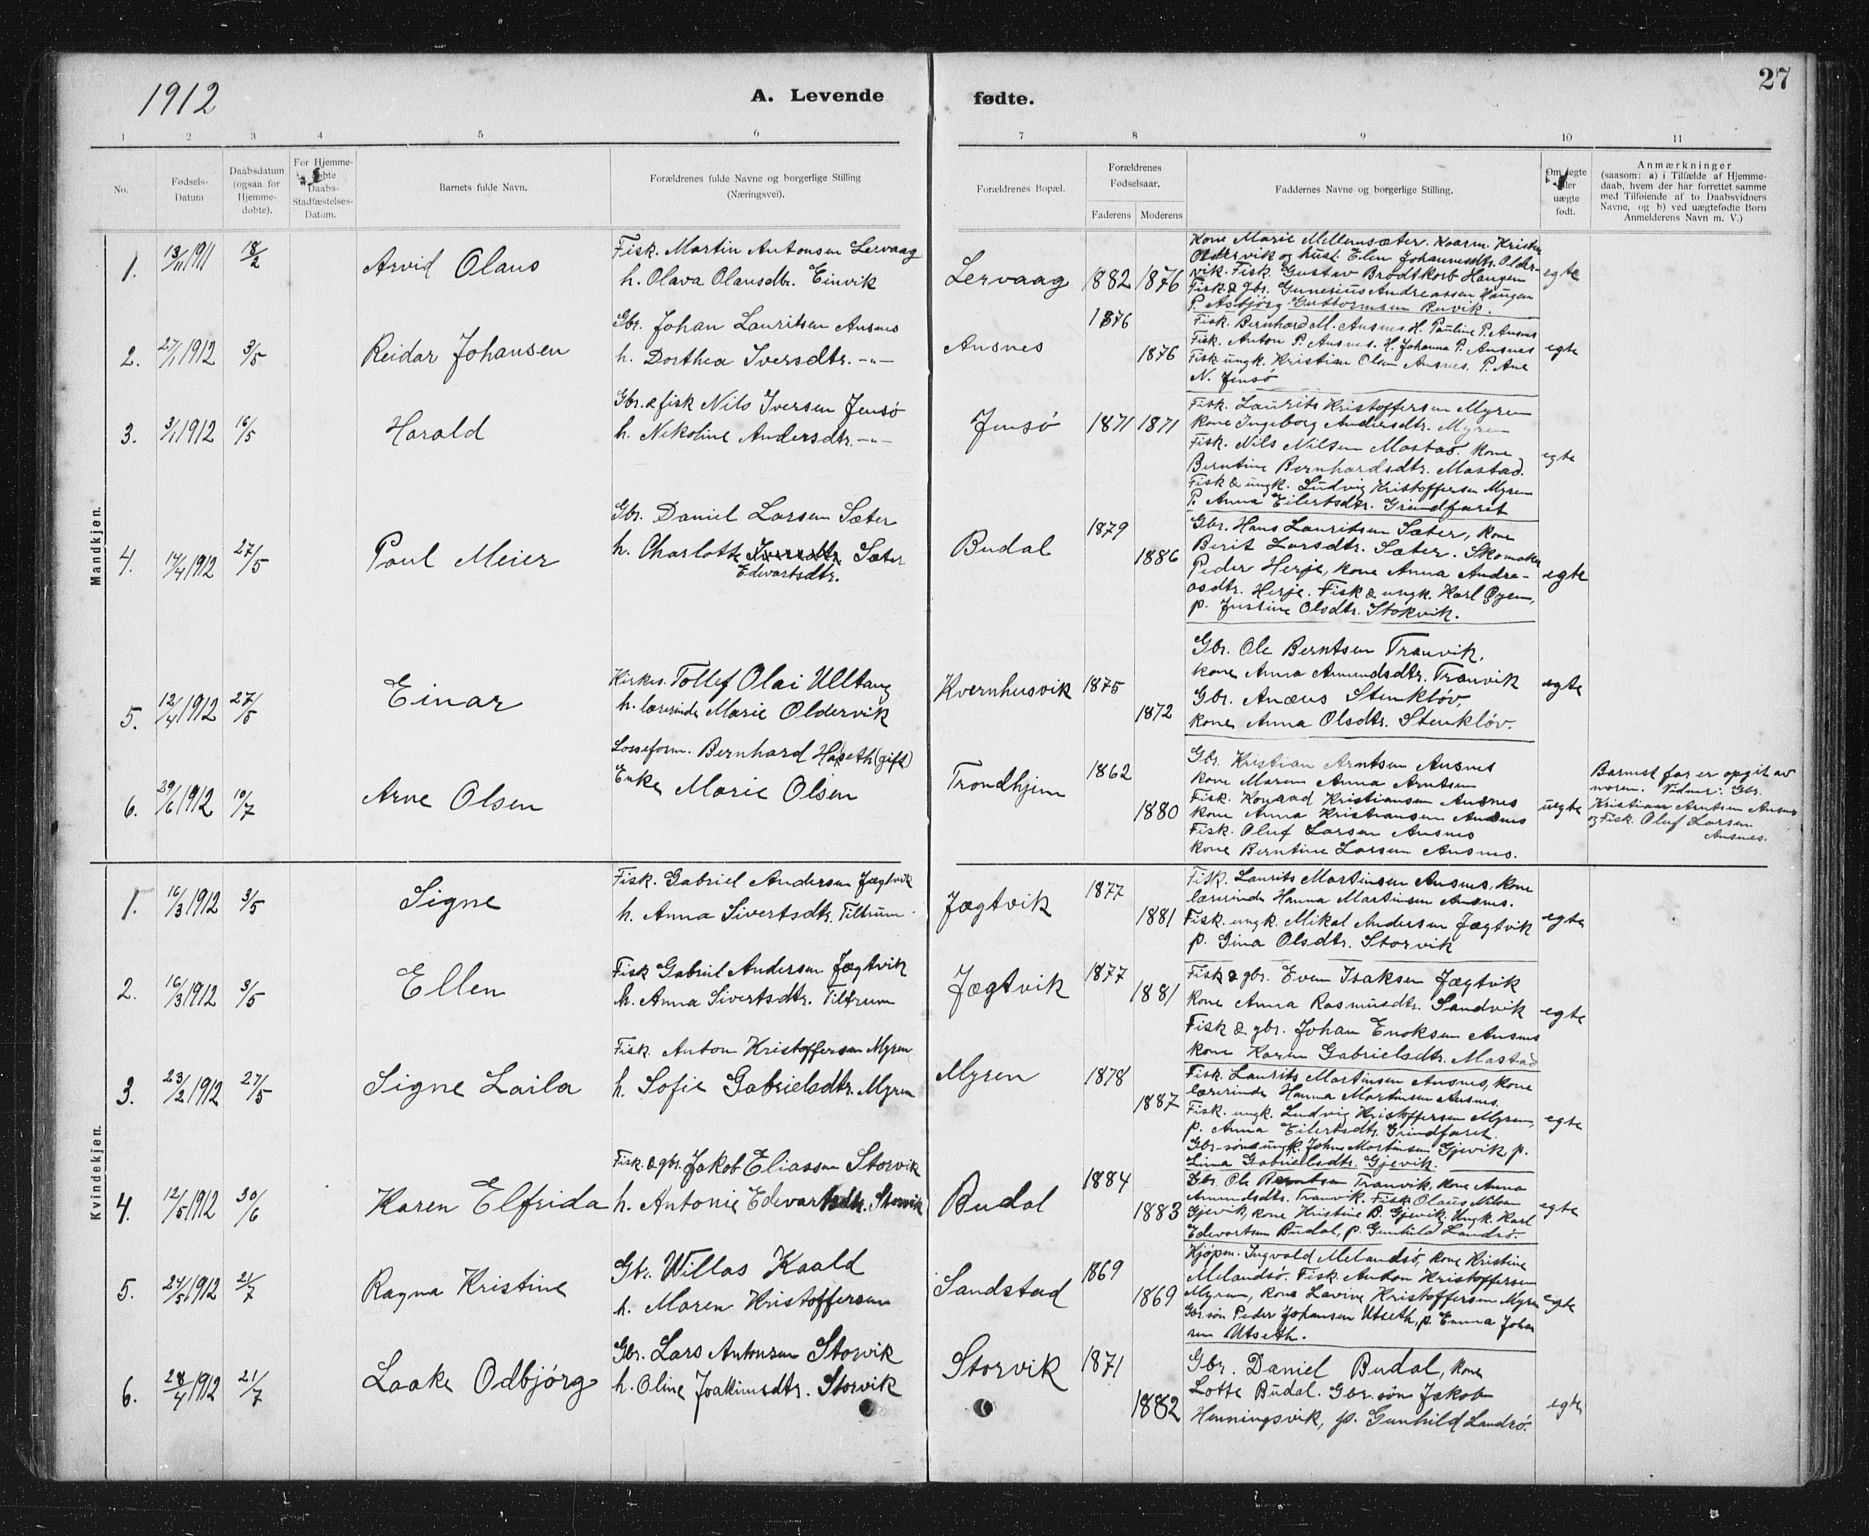 1912
A. Levende fødte.
27
1 2 3 4 5 6 7 8 9 10 11
No.
Fødsels-
Datum
Daabsdatum
(ogsaa for
Hjemme-
døbte).
For Hjemme-
døbte
Daabs-
Stadfæstelses-
Datum.
Barnets fulde Navn.
Forældrenes fulde Navne og borgerlige Stilling
(Næringsvei).
Forældrenes Bopæl.
Forældrenes
Fødselsaar.
Faderens Moderens
Faddernes Navne og borgerlige Stilling.
Om ægte
eller
uægte
født.
Anmærkninger
(saasom: a) i Tilfælde af Hjemme-
daab, hvem der har forrettet samme
med Tilføiende af to Daabsvidners
Navne, og b) ved uægtefødte Børn
Anmelderens Navn m. V.)
Mandkjøn.
1. 13/11 1911 18/2 Arvid Olaus
Fisk. Martin Antonsen Lervaag
h. Olava Olausdtr. Einvik
Lervaag 1882 1876
Kone Marie Mellemsæter. Kaarm. Kristen
Oldervik og hust. Elen Johannesdtr. Older-
vik. Fisk. Gustav Brodtkorb Haugen
Fisk & gbr. Gunerius Andreassen Haugen
P. Asbjørg Guttormsen Buvik.
egte
2. 27/1 1912 3/5 Reidar Johansen
Gbr. Johan Lauritsen Ansnes
h. Dorthea Iversdtr. -"-
Ansnes 1876 1876
Fisk. Bernhard M. Ansnes. H. Pauline P. Ansnes
Fisk. Anton P. Ansnes. H. Johanna P. Ansnes
Fisk ungk. Kristian Olsen Ansnes. P. Ane
N. Jensø
egte
3. 3/1 1912 16/5 Harald
Gbr. & fisk Nils Iversen Jensø
h. Nikoline Andersdtr. -"-
Jensø 1871 1871
Fisk. Laurits Kristoffersen Myren
kone Ingeborg Andersdtr. Myren
Fisk. Nils Nilsen Mastad. kone
Berntine Bernhardsdtr. Mastad.
Fisk & ungk. Ludvig Kristoffersen Myren
P. Anna Eilertsdtr. Grindfaret
egte
4. 14/4 1912 27/5 Paul Meier
Gbr. Daniel Larsen Sæter
h. Charlotte Iversdtr. Sæter
Edvartsdtr.
Budal 1879 1886
Gbr. Hans Lauritsen Sæter, kone
Berit Larsdtr. Sæter. Skomaker
Peder Herje, kone Anna Andre-
asdtr. Herje. Fisk & ungk. Karl Øyen,
p. Justine Olsdtr. Stokvik.
egte
5. 12/4 1912 27/5 Einar
Kirkes. Tollef Olai Ulltang
h. lærerinde Marie Oldervik
Kvernhusvik 1875 1872
Gbr. Ole Berntsen Tranvik,
kone Anna Amundsdtr. Tranvik
Gbr. Anæus Stenkløv,
kone Anna Olsdtr. Stenkløv.
egte
6. 29/6 1912 10/7 Arne Olsen
Losseform. Bernhard Haseth (gift)
Enke Marie Olsen
Trondhjem 1862 1880
Gbr. Kristian Arntsen Ansnes
kone Maren Anna Arntsen
Fisk. Konrad Kristiansen Ansnes
kone Anna Kristiansen Ansnes
Fisk. Oluf Larsen Ansnes
kone Berntine Larsen Ansnes.
uegte
Barnets far er opgit av
moren. Vidner: Gbr.
Kristian Arntsen Ansnes
og Fisk. Oluf Larsen
Ansnes.
Kvindekjøn.
1. 16/3 1912 3/5 Signe
Fisk. Gabriel Andersen Jægtvik
h. Anna Sivertsdtr. Tiltrum.
Jægtvik 1877 1881
Fisk. Laurits Martinsen Ansnes, kone
lærerinde Hanna Martinsen Ansnes.
Fisk. ungk. Mikal Andersen Jægtvik
p. Gina Olsdtr. Storvik
egte
2. 16/3 1912 3/5 Ellen
Fisk Gabriel Andersen Jægtvik
h. Anna Sivertsdtr. Tiltrum
Jægtvik 1877 1881
Fisk & gbr. Even Isaksen Jægtvik
kone Anna Rasmusdtr. Sandvik
Fisk & gbr. Johan Enoksen Ansnes
kone Karen Gabrielsdtr. Mastad
egte
3. 23/2 1912 27/5 Signe Laila
Fisk. Anton Kristoffersen Myren
h. Sofie Gabrielsdtr. Myren
Myren 1878 1887
Fisk. Laurits Martinsen Ansnes, kone
lærerinde Hanna Martinsen Ansnes.
Fisk. ungk. Ludvig Kristoffersen Myren,
p. Anna Eilertsdtr. Grindfaret.
Gbr-søn & ungk. Johs Martinsen Gjevik p.
Lina Gabrielsdtr. Gjevik.
egte
4. 12/5 1912 30/6 Karen Elfrida
Fisk. & gbr. Jakob Eliassen Storvik
h. Antonie Edevartsdtr. Storvik
Budal 1884 1883
Gbr. Ole Berntsen Tranvik, kone Anna
Amundsdtr. Tranvik. Fisk. Olaus Nilsen
Gjevik, kone Kristine B. Gjevik. Ungk. Karl
Edevartsen Budal, p. Gunhild Landrø.
egte
5. 24/5 1912 21/7 Ragna Kristine
Gbr. Willas Kaald
h. Maren Kristoffersen
Sandstad 1869 1869
Kjøpm. Ingvald Melandsø, kone Kristine
Melandsø. Fisk. Anton Kristoffersen
Myren, kone Lavine Kristoffersen Myren
Gbr søn Peder Johansen Utseth, p. Emma Johan
sen Utseth.
egte
6. 28/4 1912 21/7 Laake Odbjørg
Gbr. Lars Antonsen Storvik
h. Oline Joakimsdtr. Storvik
Storvik 1871 1882
Gbr. Daniel Budal, kone
Lotte Budal. Gbr. søn Jakob
Henningsvik, p. Gunhild Landrø.
egte